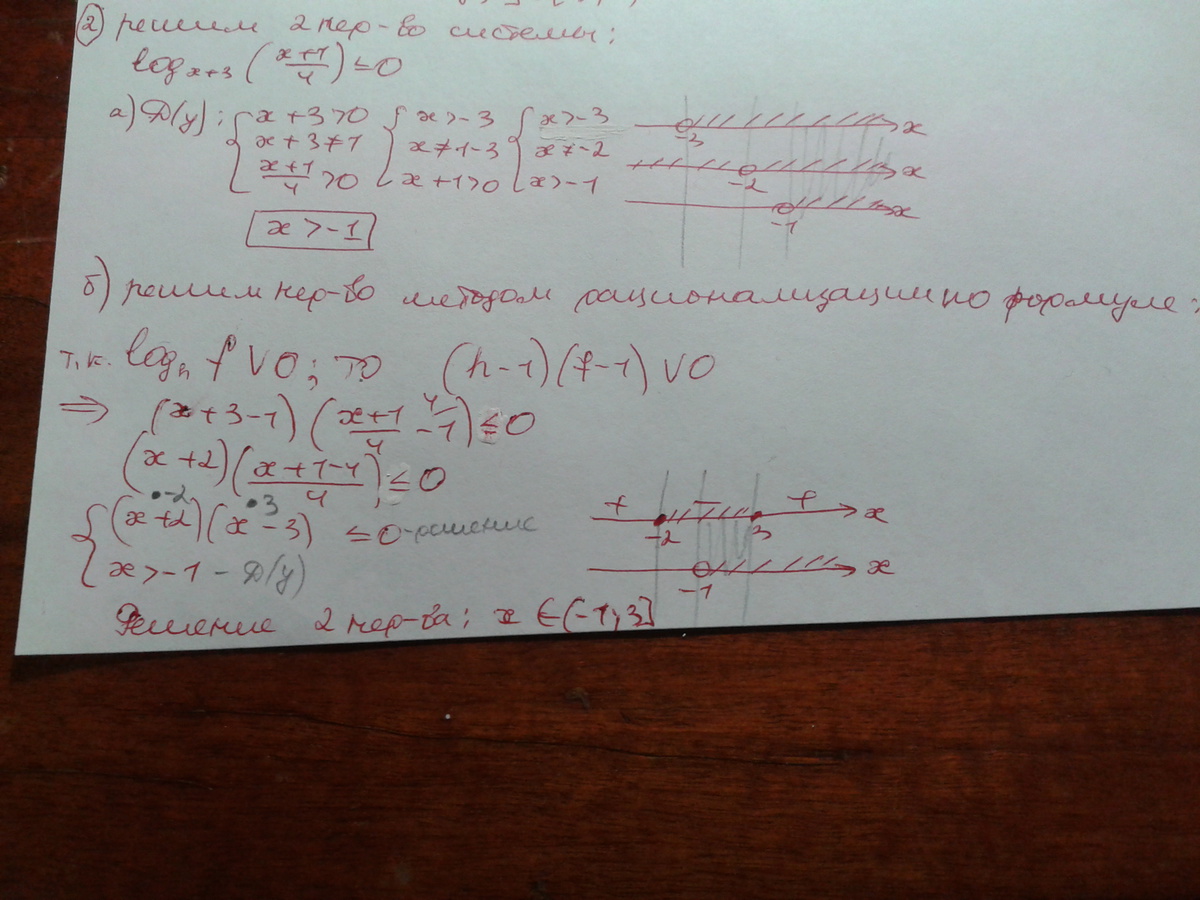 ② решим 2 нер-во системы:
log x+3 (x+1/4) ≤ 0
а) D(y): { x+3>0 { x>-3 { x>-3
x+3≠1 x≠1-3 x≠-2
x+1/4 >0 x+1>0 x>-1
-3 x
-2 x
-1 x
x>-1
б) решим нер-во методом рационализации по формуле:
т.к. log h f V 0; то (h-1)(f-1) V 0
⇒ (x+3-1)(x+1/4 - 1) ≤ 0
4
(x+2)(x+1-4/4) ≤ 0
•-2 •3
{ (x+2)(x-3) ≤ 0 - решение
x>-1 - D(y)
+ - + x
-2 3
-1 x
Решение 2 нер-ва: x ∈ (-1; 3]